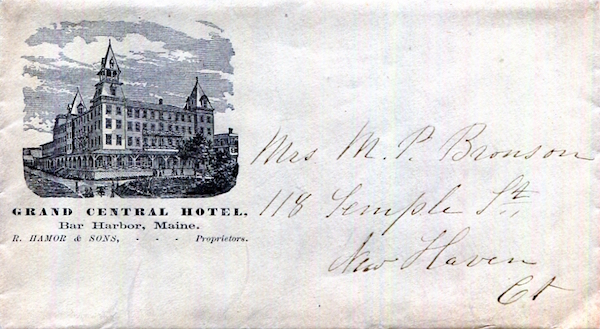 GRAND CENTRAL HOTEL,
Bar Harbor, Maine.
R. HAMOR & SONS, - - - Proprietors.
Mrs. M. P. Bronson
118 Temple St.,
New Haven
Ct